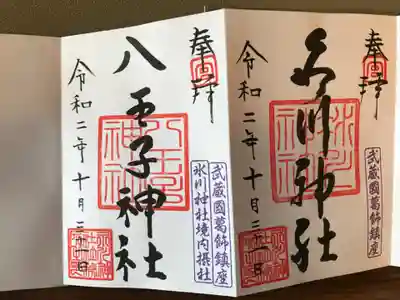 奉拝
氷川神社
令和二年十月
武蔵國葛飾鎮座
奉拝
八王子神社
令和二年十月
武蔵國葛飾鎮座
氷川神社境内摂社